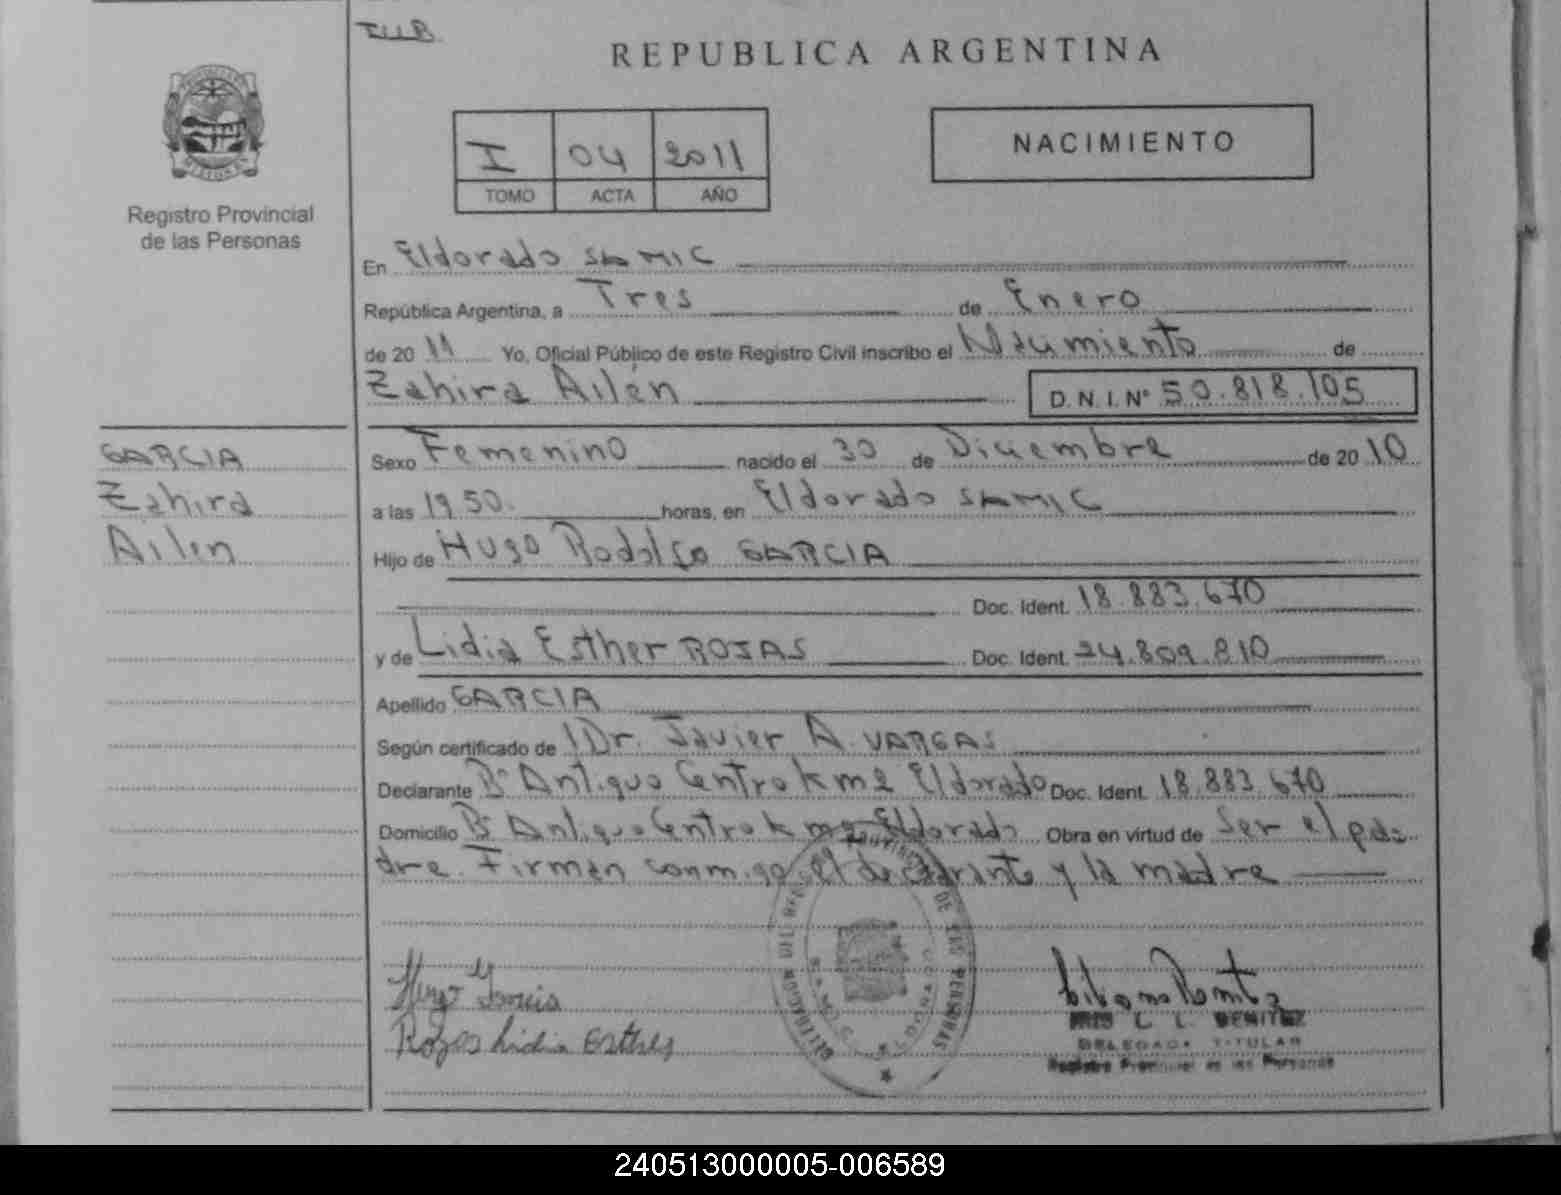 REPUBLICA ARGENTINA
I 04 2011
TOMO ACTA AÑO
NACIMIENTO
Registro Provincial
de las Personas
En Eldorado SAMIC
República Argentina, a Tres de Enero
de 2011 Yo, Oficial Público de este Registro Civil inscribo el Nacimiento de
Zahira Ailén D.N.I. Nº 50.818.105
GARCIA
Zahira
Ailen
Sexo Femenino nacido el 30 de Diciembre de 2010
a las 19 50. horas, en Eldorado SAMIC
Hijo de Hugo Rodolfo GARCIA
Doc. Ident. 18.883.670
y de Lidia Esther ROJAS Doc. Ident. 24.809.810
Apellido GARCIA
Según certificado de Dr. Javier A. VARGAS
Declarante Bº Antiguo Centro Km 2 Eldorado Doc. Ident. 18.883.670
Domicilio Bº Antiguo Centro km 2 Eldorado Obra en virtud de Ser el pa
dre. Firman conmigo el declarante y la madre
Hugo Garcia
Rojas Lidia Esther
DELEGACION DEL REG PROVINCIAL DE LAS PERSONAS
ELDORADO
L. L. BENITEZ
DELEGADA TITULAR
Registro Provincial de las Personas
240513000005-006589